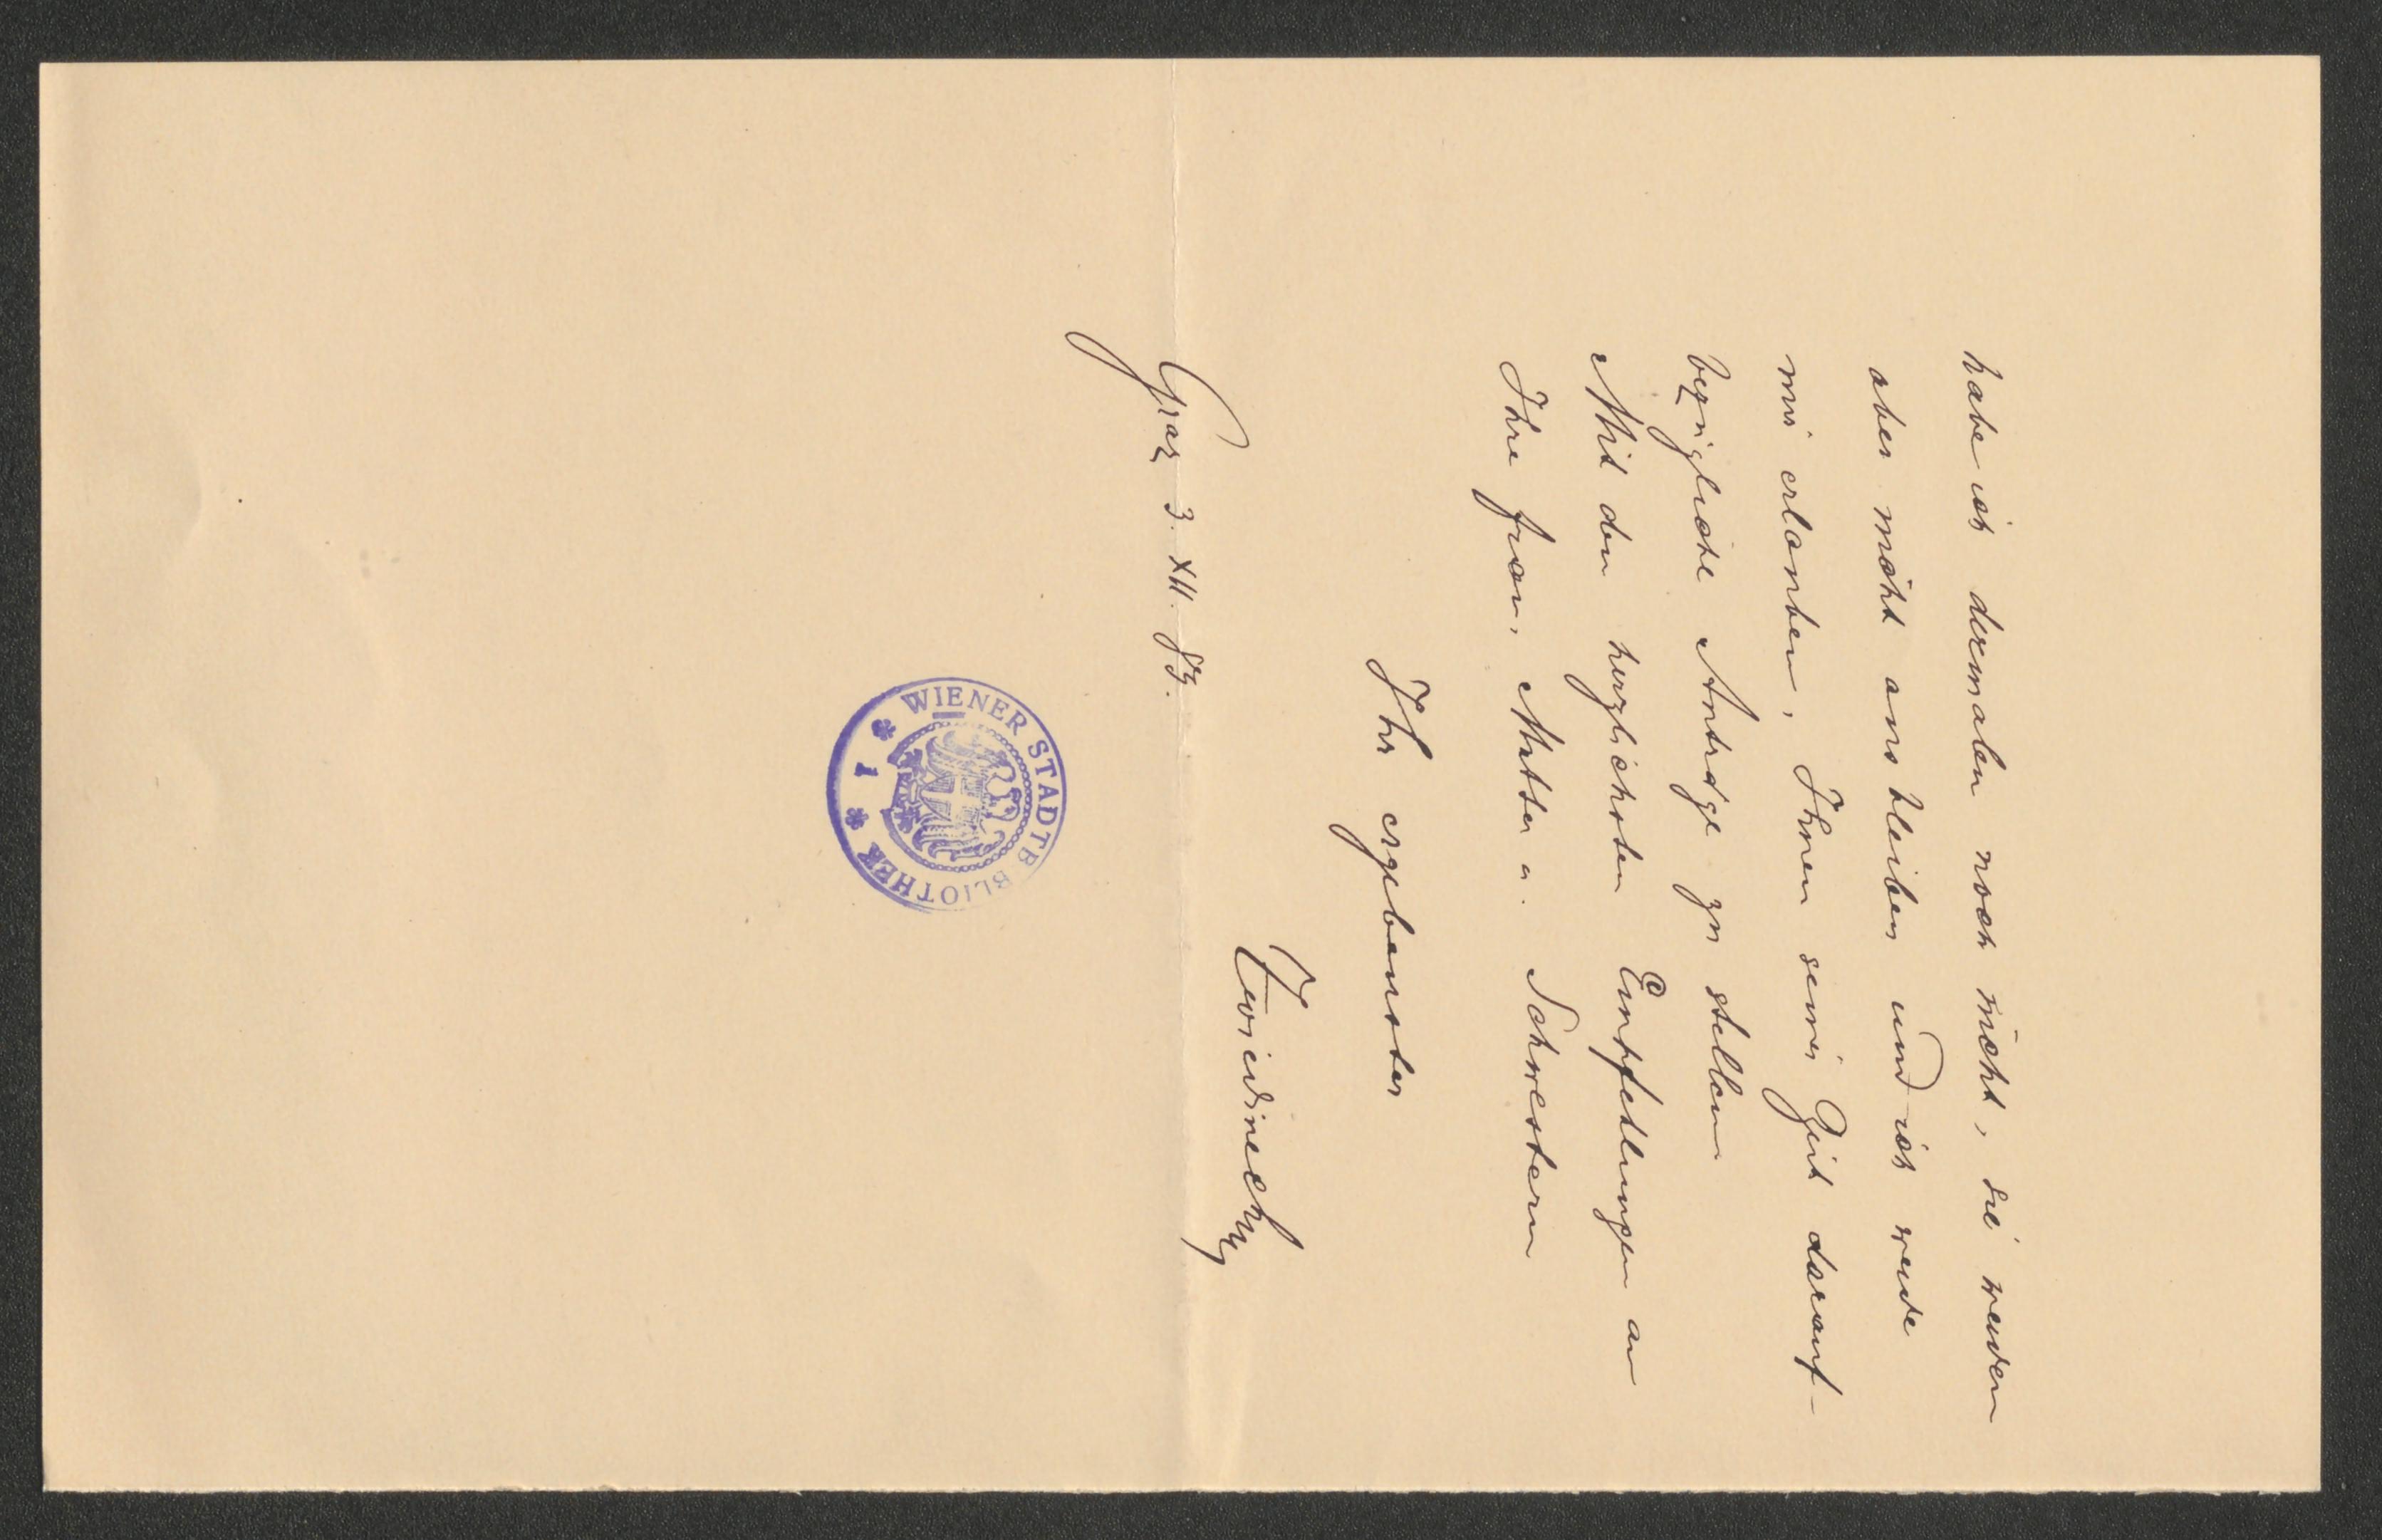 habe ich dermalen noch nicht, sie werden
aber nicht ausbleiben und ich werde
mir erlauben, Ihnen seiner Zeit darauf-
bezügliche Anträge zu stellen
Mit den herzlichsten Empfehlungen an
Ihre Frau, Mutter u. Schwestern
Ihr ergebenster
Zwiedineck
Graz 3. XII. 89.
WIENER STADTB BLIOTHEK
* 1 *